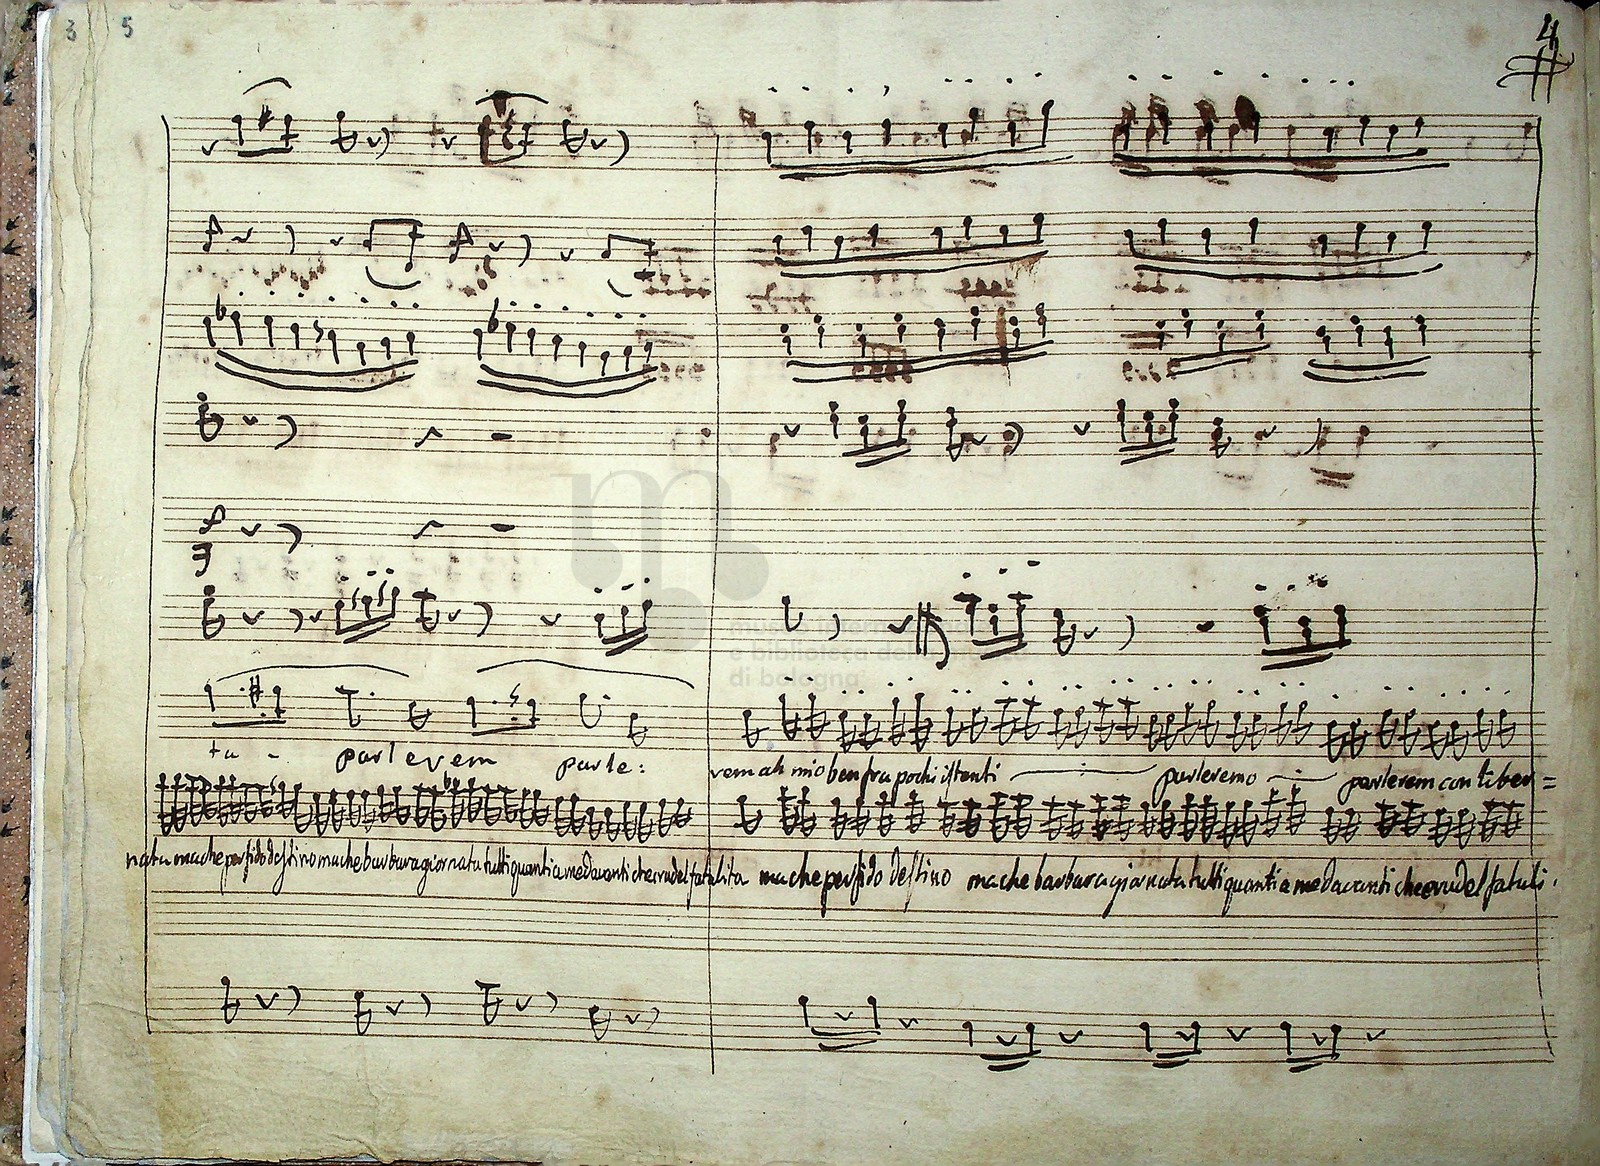 3 5
4
ta - parlerem parle:
rem ah mio ben fra pochi istenti parleremo parlerem con liber=
nata ma che perfido destino ma che barbara giornata tutti quanti a me davanti che crudel fatalita ma che perfido destino ma che barbara giornata tutti quanti a me davanti che crudel fatali.
museo internazionale
e biblioteca della musica
di bologna